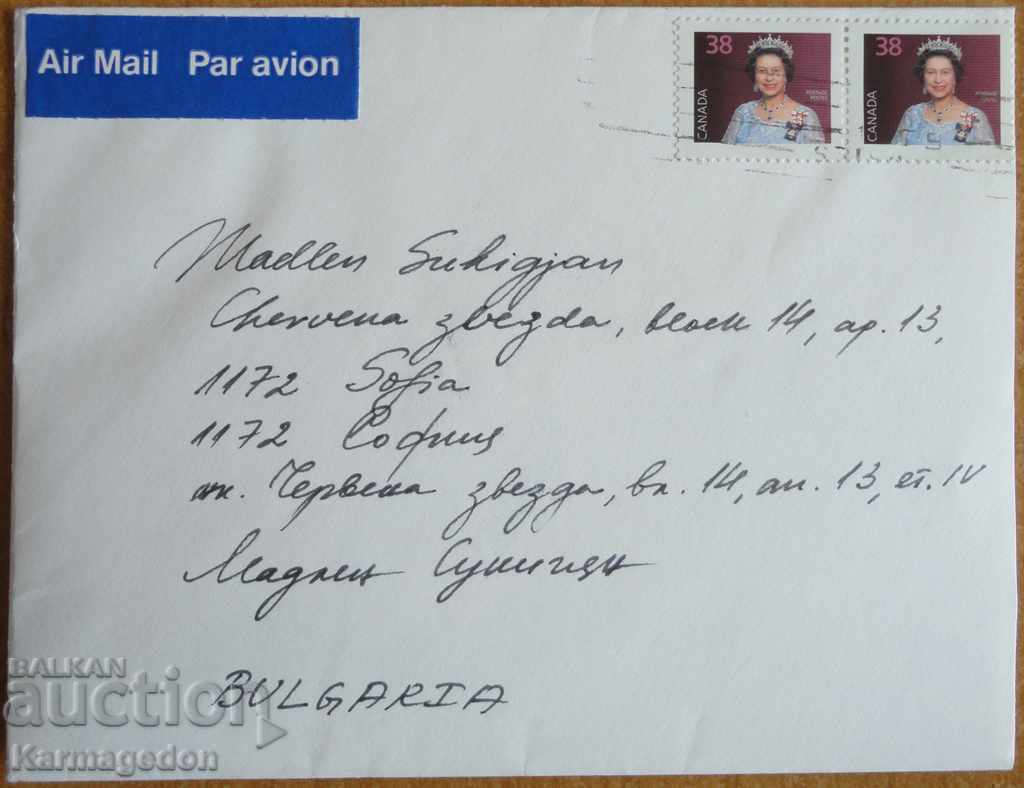 Air Mail Par avion
38 38
CANADA CANADA
POSTAGE
POSTES
Madlen Sukigjan
Chervena zvezda, block 14, ap. 13,
1172 Sofia
1172 София
жк. Червена звезда, бл. 14, ап. 13, ет. IV
Мадлен
BULGARIA
BALKAN
auction
Karmagedon